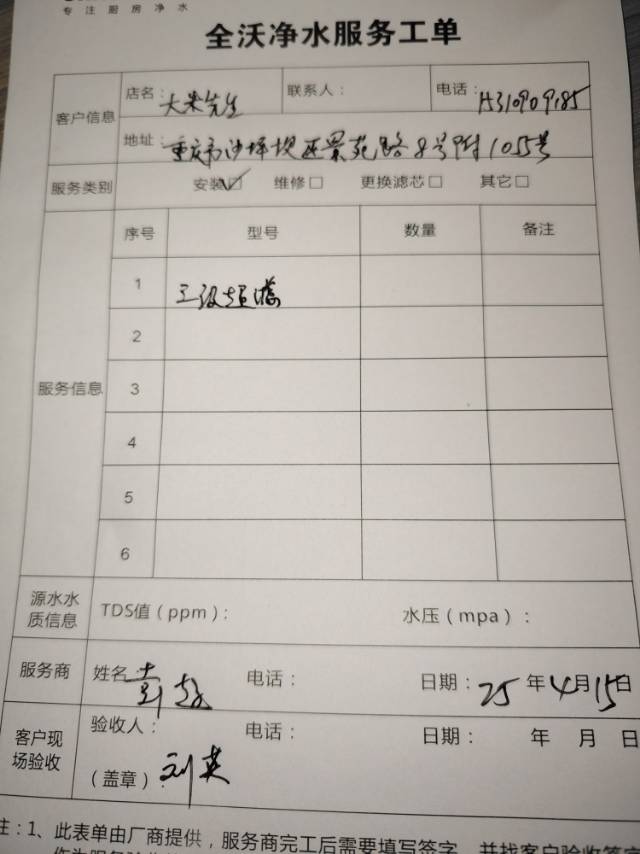 专注厨房净水
全沃净水服务工单
客户信息
店名：大米先生
联系人：
电话：
地址：重庆市沙坪坝区景苑路8号附1055号
服务类别
安装☑ 维修□ 更换滤芯□ 其它□
服务信息
序号 型号 数量 备注
1 三级超滤
2
3
4
5
6
源水水
质信息
TDS值（ppm）： 水压（mpa）：
服务商
姓名 电话： 日期：25年4月15日
客户现
场验收
验收人： 电话： 日期： 年 月 日
（盖章） 刘英
注：1、此表单由厂商提供，服务商完工后需要填写签字，并找客户验收签字